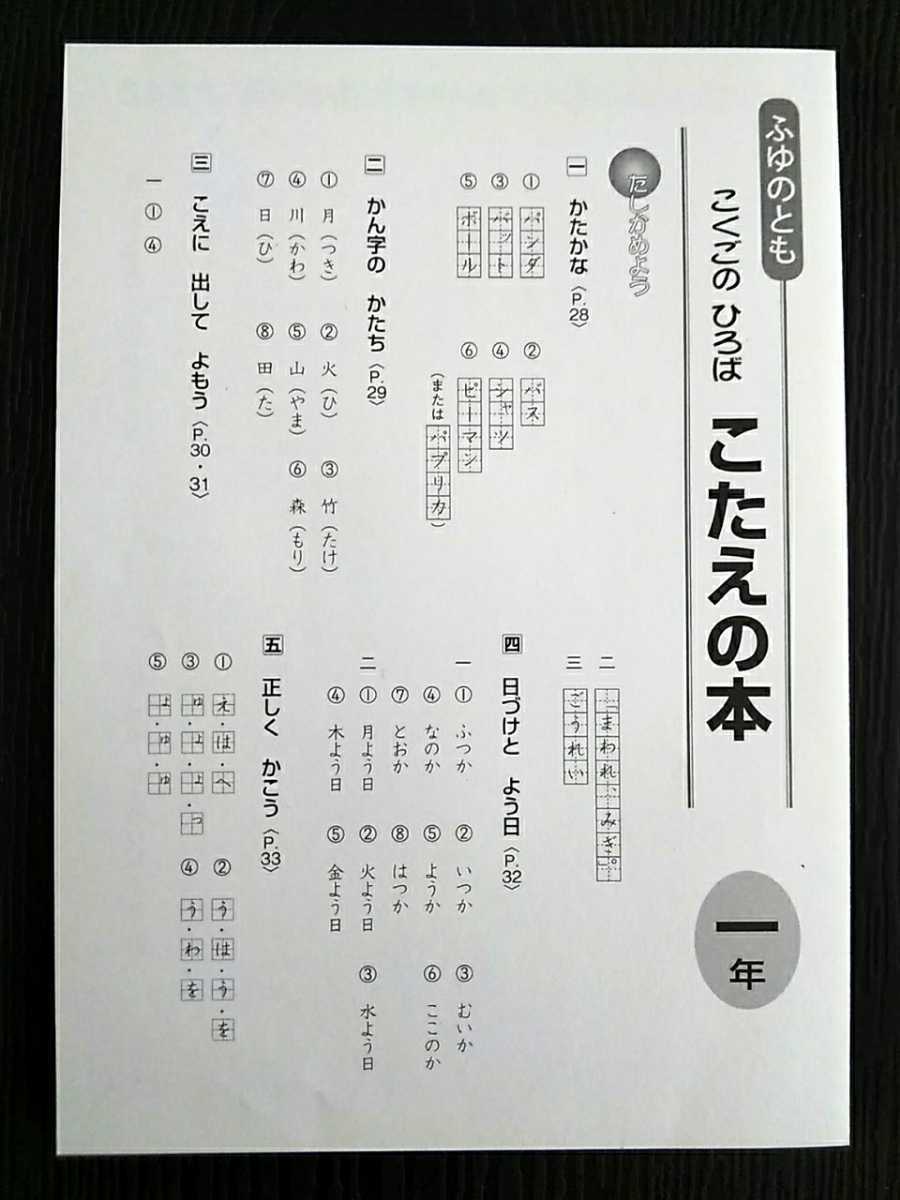 ふゆのとも
こくごの ひろば こたえの本
一年
たしかめよう
一 かたかな〈P.28〉
① パンダ ② バス
③ バット ④ シャツ
⑤ ボール ⑥ ピーマン
(または パプリカ)
二 かん字の かたち〈P.29〉
① 月(つき) ② 火(ひ) ③ 竹(たけ)
④ 川(かわ) ⑤ 山(やま) ⑥ 森(もり)
⑦ 日(ひ) ⑧ 田(た)
三 こえに 出して よもう〈P.30・31〉
一 ① ④
二 「まわれ、みぎ。」
三 ごうれい
四 日づけと よう日〈P.32〉
一 ① ふつか ② いつか ③ むいか
④ なのか ⑤ ようか ⑥ ここのか
⑦ とおか ⑧ はつか
二 ① 月よう日 ② 火よう日 ③ 水よう日
④ 木よう日 ⑤ 金よう日
五 正しく かこう〈P.33〉
① え・は・へ ② う・は・う・を
③ ゅ・ょ・ょ・っ ④ う・わ・を
⑤ ょ・ゅ・ゅ